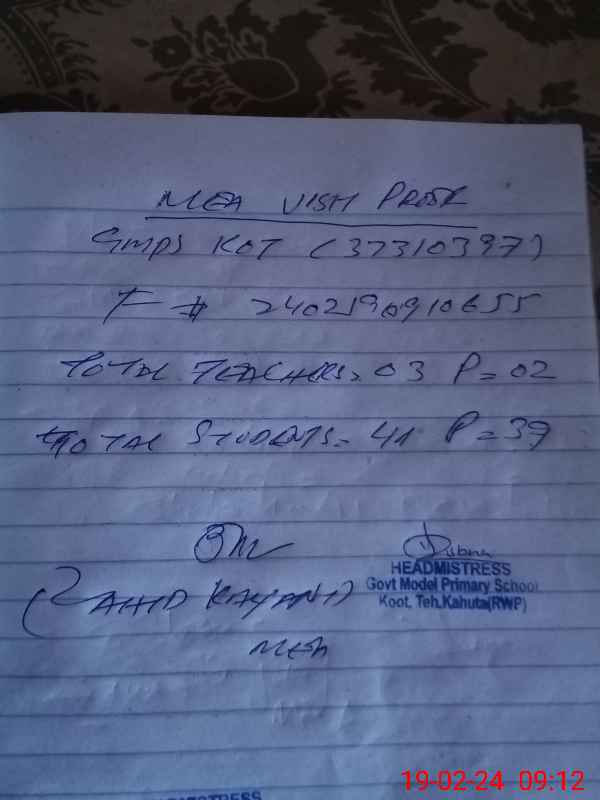 MEA VISIT PROOF
GMPS KOT (37310397)
F # 240219090910655
TOTAL TEACHERS = 03 P = 02
TOTAL STUDENTS = 41 P = 39
(ZAHID KAYANI)
MEA
HEADMISTRESS
Govt Model Primary School
Koot, Teh.Kahuta(RWP)
19-02-24 09:12